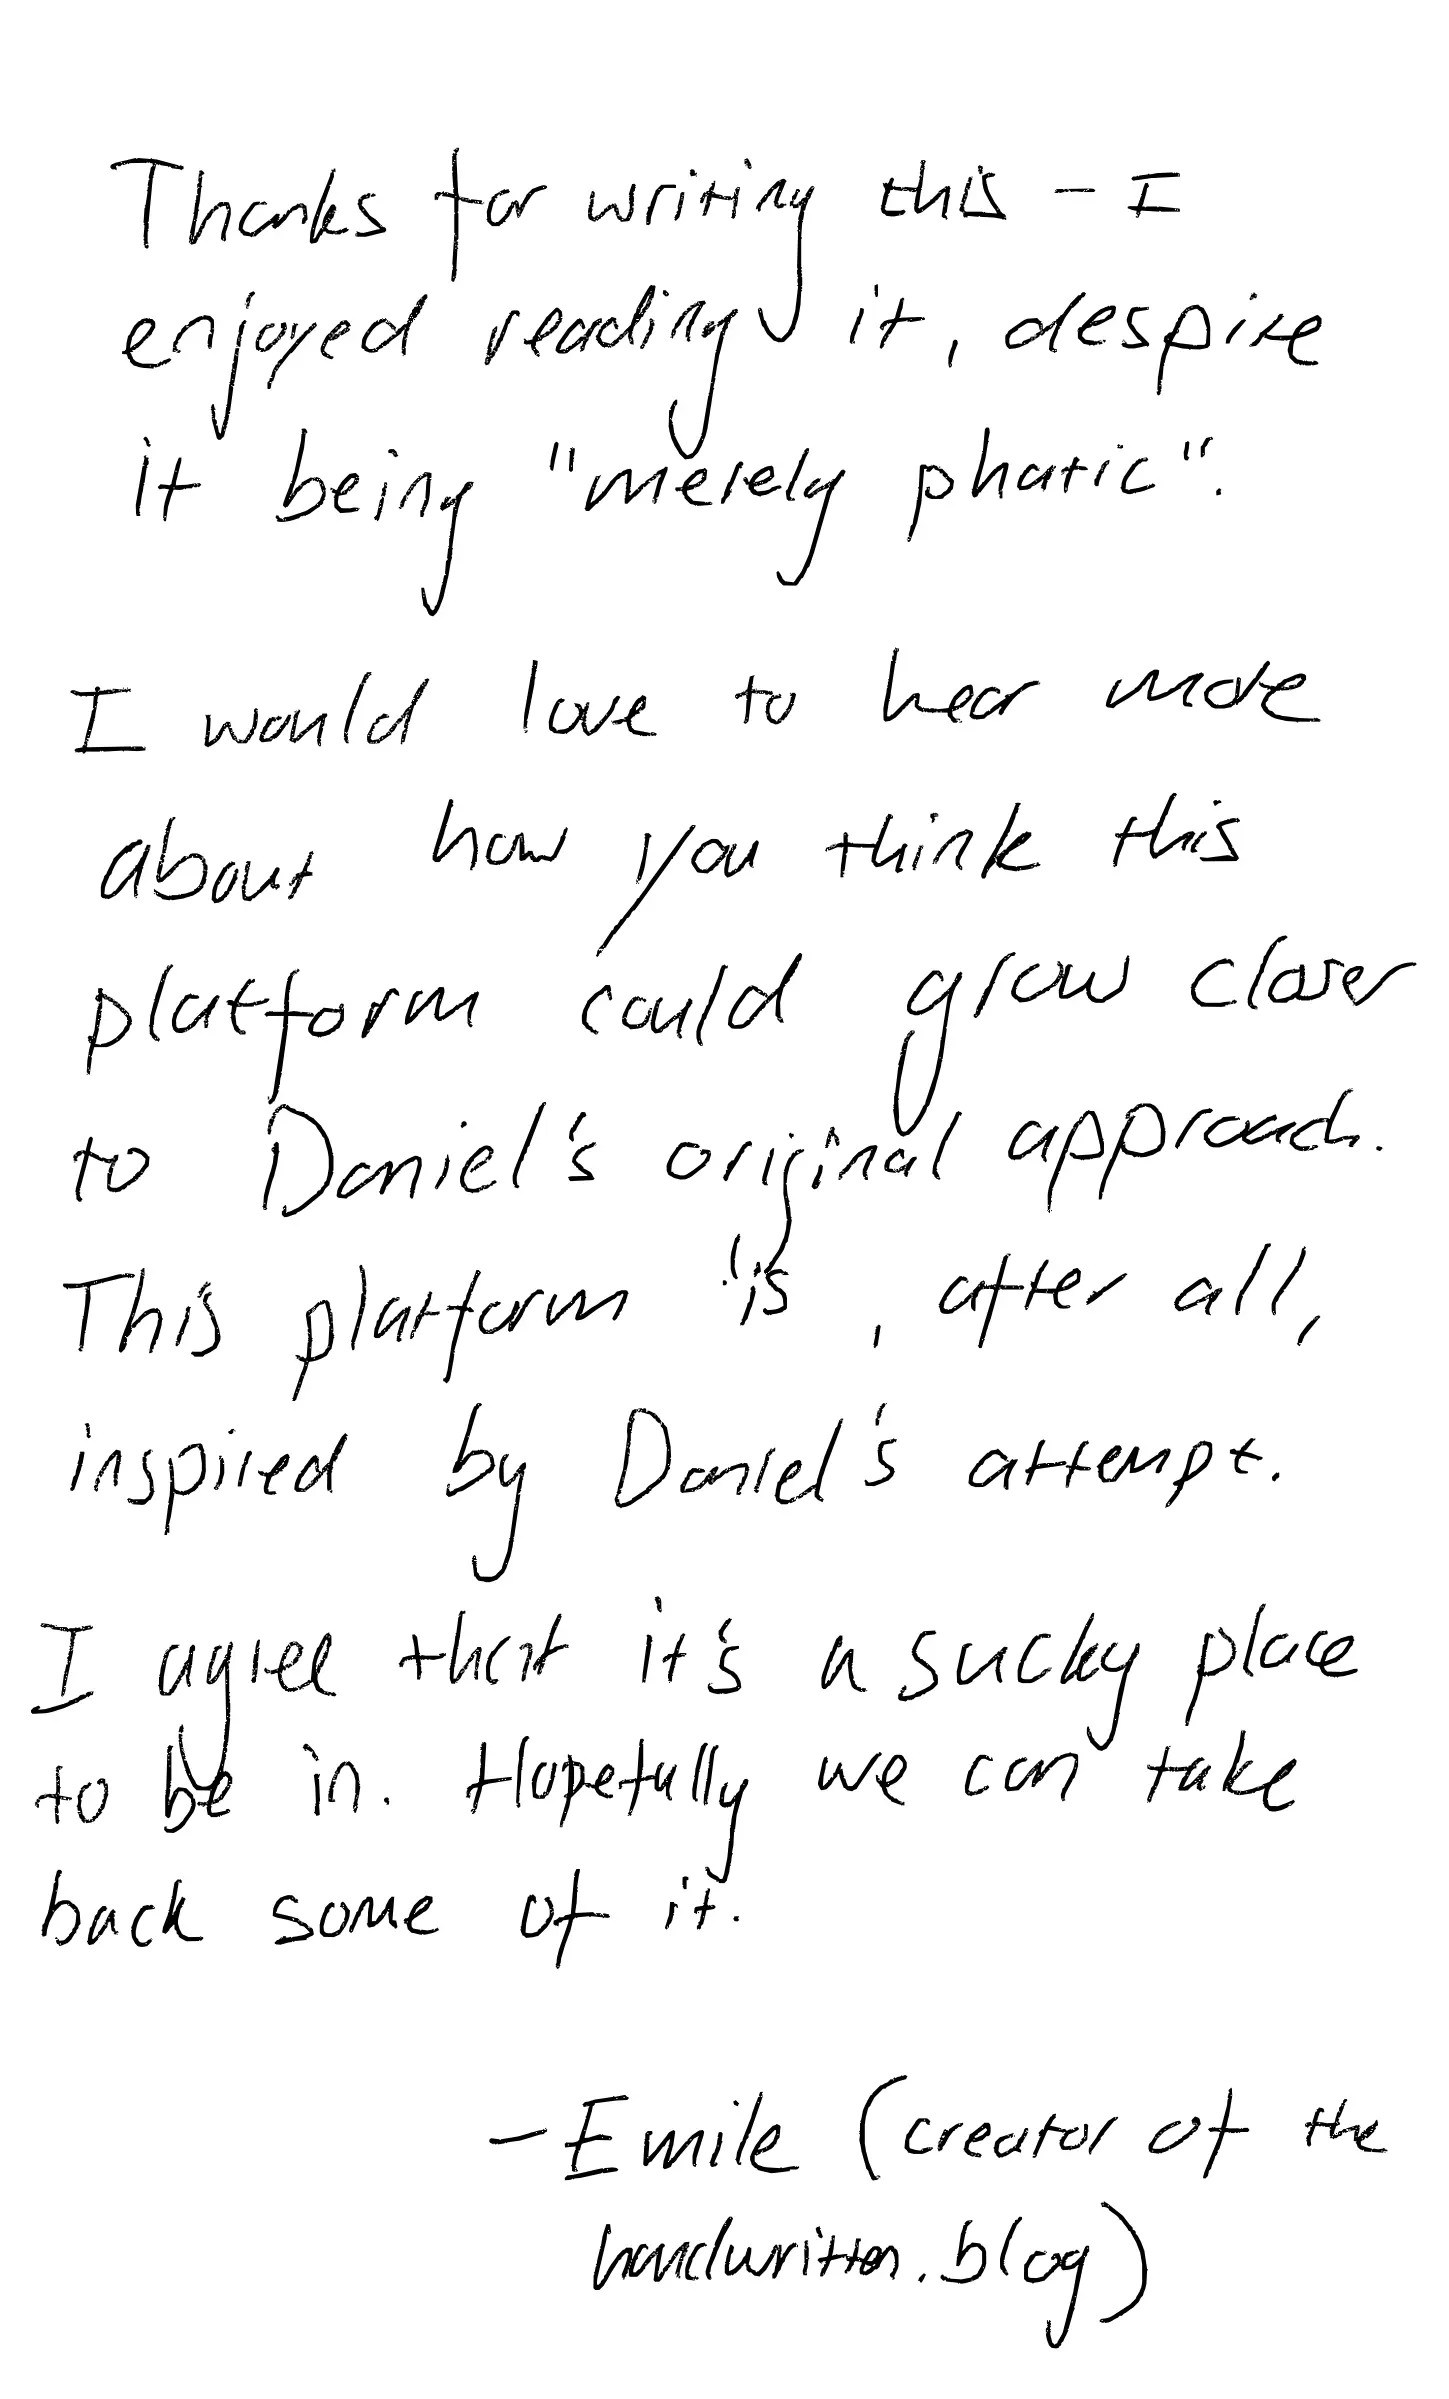 Thanks for writing this - I
enjoyed reading it, despite
it being "merely phatic".
I would love to hear more
about how you think this
platform could grow closer
to Daniel's original approach.
This platform is, after all,
inspired by Daniel's attempt.
I agree that it's a sucky place
to be in. Hopefully we can take
back some of it.
- Emile (creator of the
handwritten.blog)